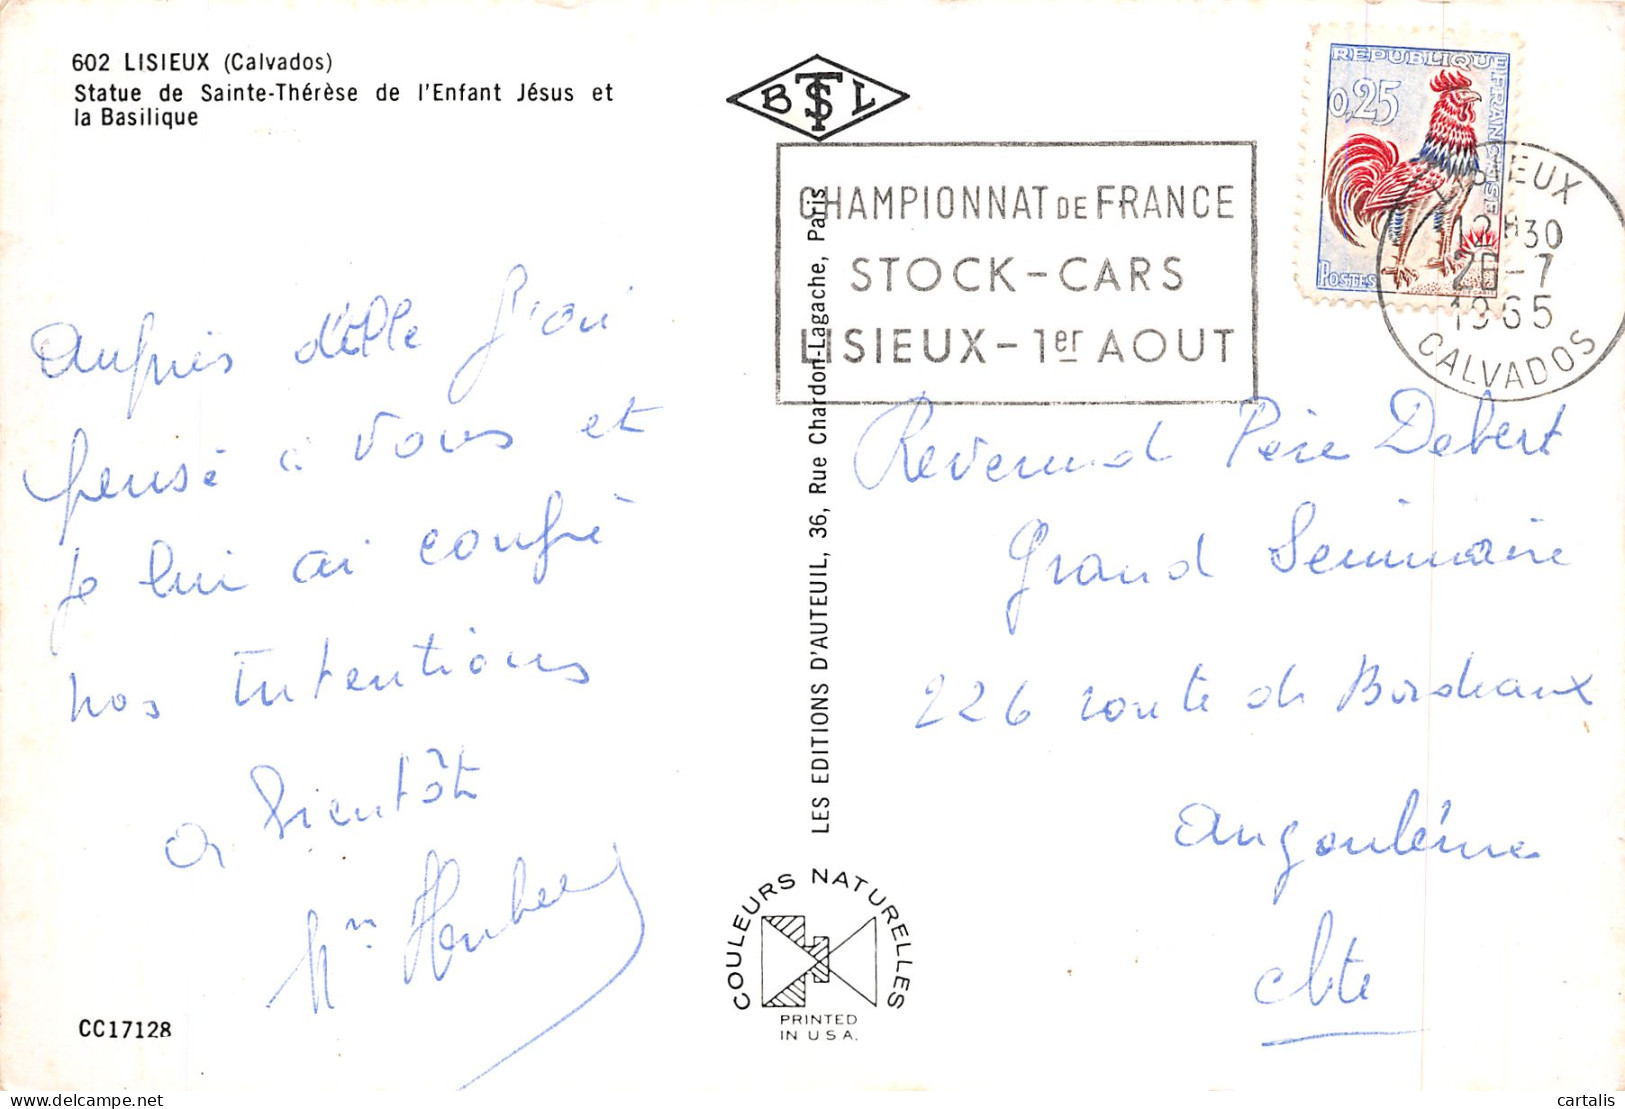 602 LISIEUX (Calvados)
Statue de Sainte-Thérèse de l'Enfant Jésus et
la Basilique
Auprès d'elle j'ai
pensé à vous et
je lui ai confié
nos Intentions
a bientôt
CC17128
BTSL
CHAMPIONNAT DE FRANCE
STOCK-CARS
LISIEUX-1er AOUT
LES EDITIONS D'AUTEUIL, 36, Rue Chardon-Lagache, Paris
COULEURS NATURELLES
PRINTED
IN U S A.
REPUBLIQUE FRANCAISE
0,25
POSTES
LISIEUX
12H30
-7
1965
CALVADOS
Reverend Père Debert
Grand Séminaire
226 route de Bordeaux
Angoulême
chte
cartalis
delcampe.net